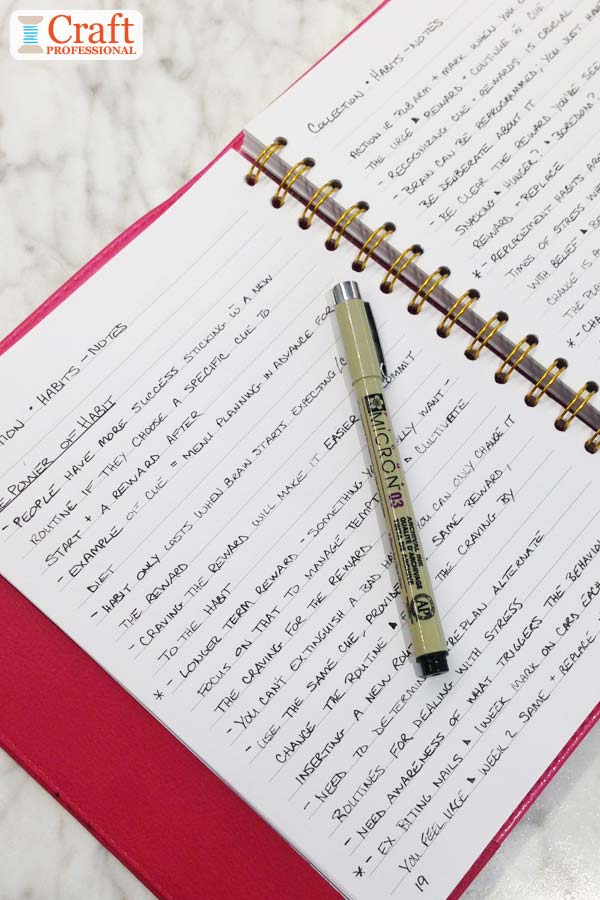 Craft
PROFESSIONAL
TION • HABITS - NOTES
POWER OF HABIT
- PEOPLE HAVE MORE SUCCESS STICKING W̄ A NEW
ROUTINE IF THEY CHOOSE A SPECIFIC CUE TO
START + A REWARD AFTER
- EXAMPLE OF CUE = MENU PLANNING IN ADVANCE FOR
DIET
- HABIT ONLY COSTS WHEN BRAIN STARTS EXPECTING/C
THE REWARD
- CRAVING THE REWARD WILL MAKE IT EASIER COMMIT
TO THE HABIT
* - LONGER TERM REWARD - SOMETHING YOU LLY WANT -
FOCUS ON THAT TO MANAGE TEMPT D CULTIVATE
THE CRAVING FOR THE REWARD
- YOU CAN'T EXTINGUISH A BAD HA YOU CAN ONLY CHANGE IT
- USE THE SAME CUE, PROVIDE SAME REWARD,
CHANGE THE ROUTINE THE CRAVING BY
INSERTING A NEW ROU
- NEED TO DETERMIN PREPLAN ALTERNATE
ROUTINES FOR DEALING WITH STRESS
- NEED AWARENESS OF WHAT TRIGGERS THE BEHAVIOU
* - EX BITING NAILS Δ 1 WEEK MARK ON CARD EACH
YOU FEEL URGE Δ WEEK 2 SAME + REPLACE
19
COLLECTION • HABITS - NOTES
ACTION IE RUB ARM + MARK WHEN YOU
THE URGE Δ REWARD + CONTINUE W̄ CUE
- RECOGNIZING CUE + REWARDS IS CRUCIAL
- BRAIN CAN BE REPROGRAMMED; YOU JUST HAV
BE DELIBERATE ABOUT IT
- BE CLEAR THE REWARD YOU'RE SEE
SNACKING Δ HUNGER? Δ BOREDOM?
REWARD - REPLACE
* - REPLACEMENT HABITS AR
TIMES OF STRESS WH
WITH BELIEF Δ BE
CHANGE IS A
THE PLA
* - CHA
MICRON 03
ARCHIVAL INK
QUALITÉ D'ARCHIVAGE
AP